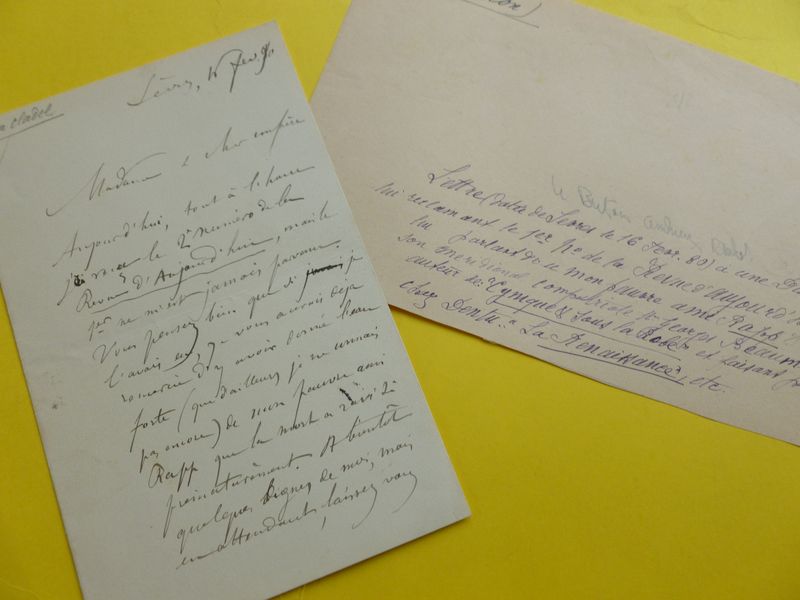 cladel
Sèvres, 16 fev. 90
Madame & cher confrère
Aujourd'hui, tout à l'heure
j'ai reçu le 2e numéro de la
Revue d'Aujourd'hui, mais le
per ne m'est jamais parvenu.
Vous pensez bien que si je
l'avais eu, je vous aurais déjà
remercié d'y avoir donné beau
forte (que d'ailleurs je ne connais
pas encore) de mon pauvre ami
Rapp que la mort a ravi
prématurément. A bientôt
quelques lignes de moi, mais
en attendant, laissez vous
Lettre (datée de Sèvres le 16 Fevr. 89) à une
lui reclamant le 1er No de la Revue d'aujourd'
lui parlant de mon pauvre ami
son méridional compatriote Georges Beaume
auteur de: sous la Robe et faisant
chez Dentu "La Renaissance", etc.